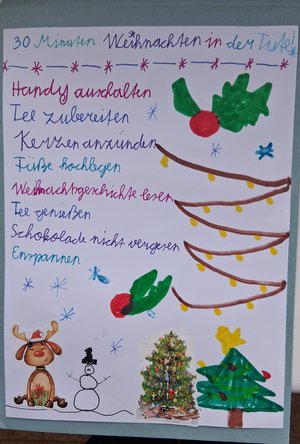 30 Minuten Weihnachten in der Tüte!
Handy auschalten
Tee zubereiten
Kerzen anzünden
Füße hochlegen
Weihnachtsgeschichte lesen
Tee genießen
Schokolade nicht vergesen
Enspannen